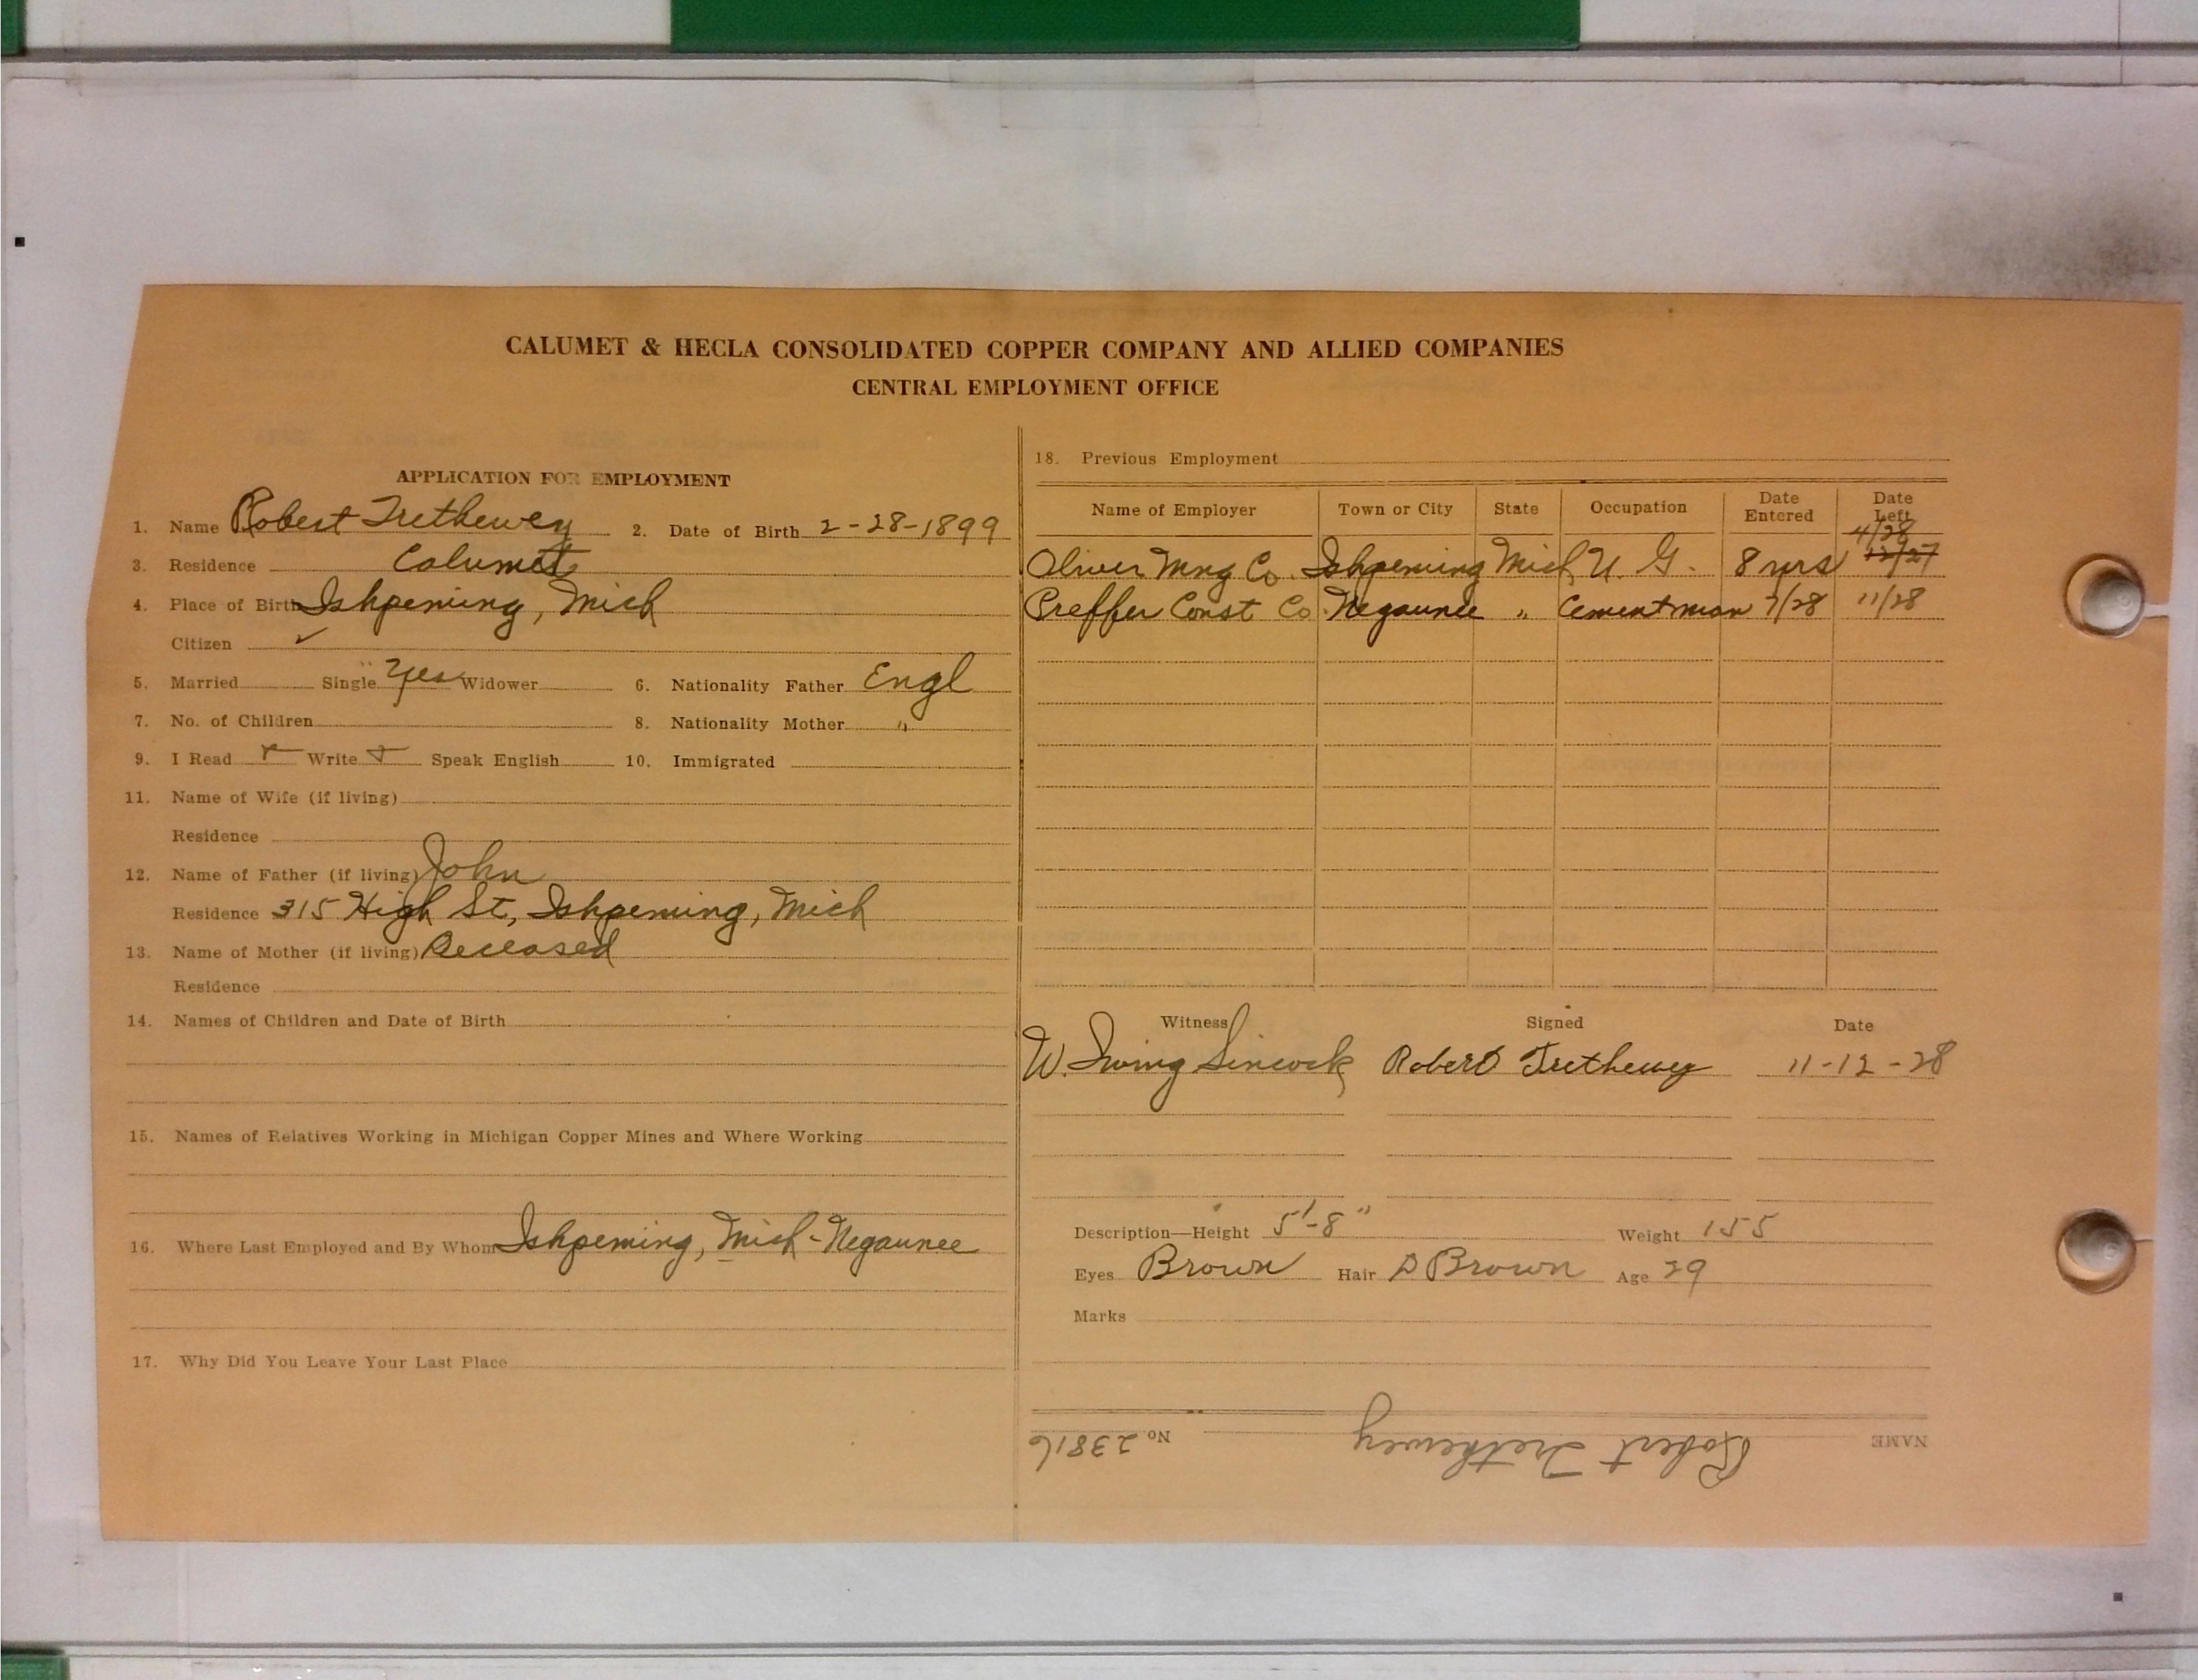 CALUMET & HECLA CONSOLIDATED COPPER COMPANY AND ALLIED COMPANIES
CENTRAL EMPLOYMENT OFFICE
APPLICATION FOR EMPLOYMENT
1. Name Robert Trethewey 2. Date of Birth 2-28-1899
3. Residence Calumet
4. Place of Birth Ishpeming, Mich
Citizen ✓
5. Married Single Yes Widower 6. Nationality Father Engl
7. No. of Children 8. Nationality Mother "
9. I Read Write Speak English 10. Immigrated
11. Name of Wife (if living)
Residence
12. Name of Father (if living) John
Residence 315 High St, Ishpeming, Mich
13. Name of Mother (if living) Deceased
Residence
14. Names of Children and Date of Birth
15. Names of Relatives Working in Michigan Copper Mines and Where Working
16. Where Last Employed and By Whom Ishpeming, Mich - Negaunee
17. Why Did You Leave Your Last Place
18. Previous Employment
Name of Employer Town or City State Occupation Date Entered Date Left
4/28
Oliver Mng Co. Ishpeming Mich U. G. 8 yrs 12/27
Preffer Const Co. Negaunee " Cement man 7/28 11/28
Witness Signed Date
W. Irving Sincock Robert Trethewey 11-12-28
Description—Height 5'-8" Weight 155
Eyes Brown Hair D Brown Age 29
Marks
NAME Robert Trethewey No. 23816